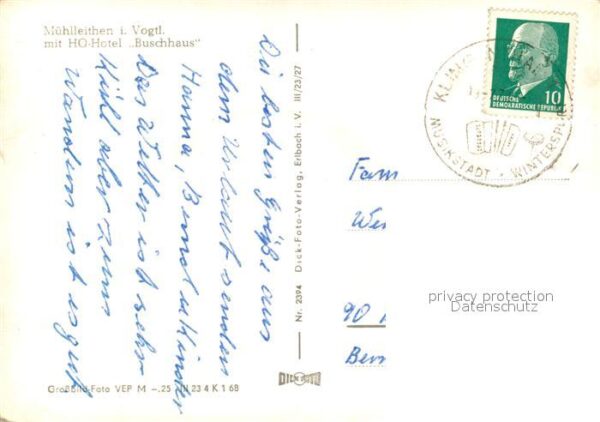 Mühlleithen i. Vogtl.
mit HO-Hotel „Buschhaus"
Die besten Grüße aus
dem Urlaub senden
Hanna, Bernd u. Kinder
Das Wetter ist sehr
kühl aber zum
Wandern ist es gut
Nr. 2394 Dick-Foto-Verlag, Erlbach i. V. III/23/27
DICK FOTO
Großbild-Foto VEP M –,25 III 23 4 K 1 68
10
DEUTSCHE
DEMOKRATISCHE REPUBLIK
MUSIKSTADT · WINTERSP
Fam
90
privacy protection
Datenschutz